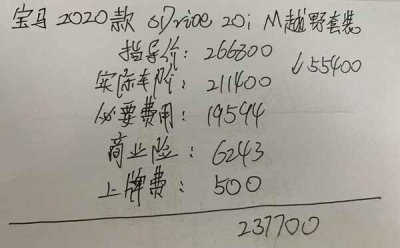 宝马2020款 sDrive 20i M越野套装
指导价：266800
↓55400
实际车价：211400
必要费用：19594
商业险：6243
上牌费：500
237700